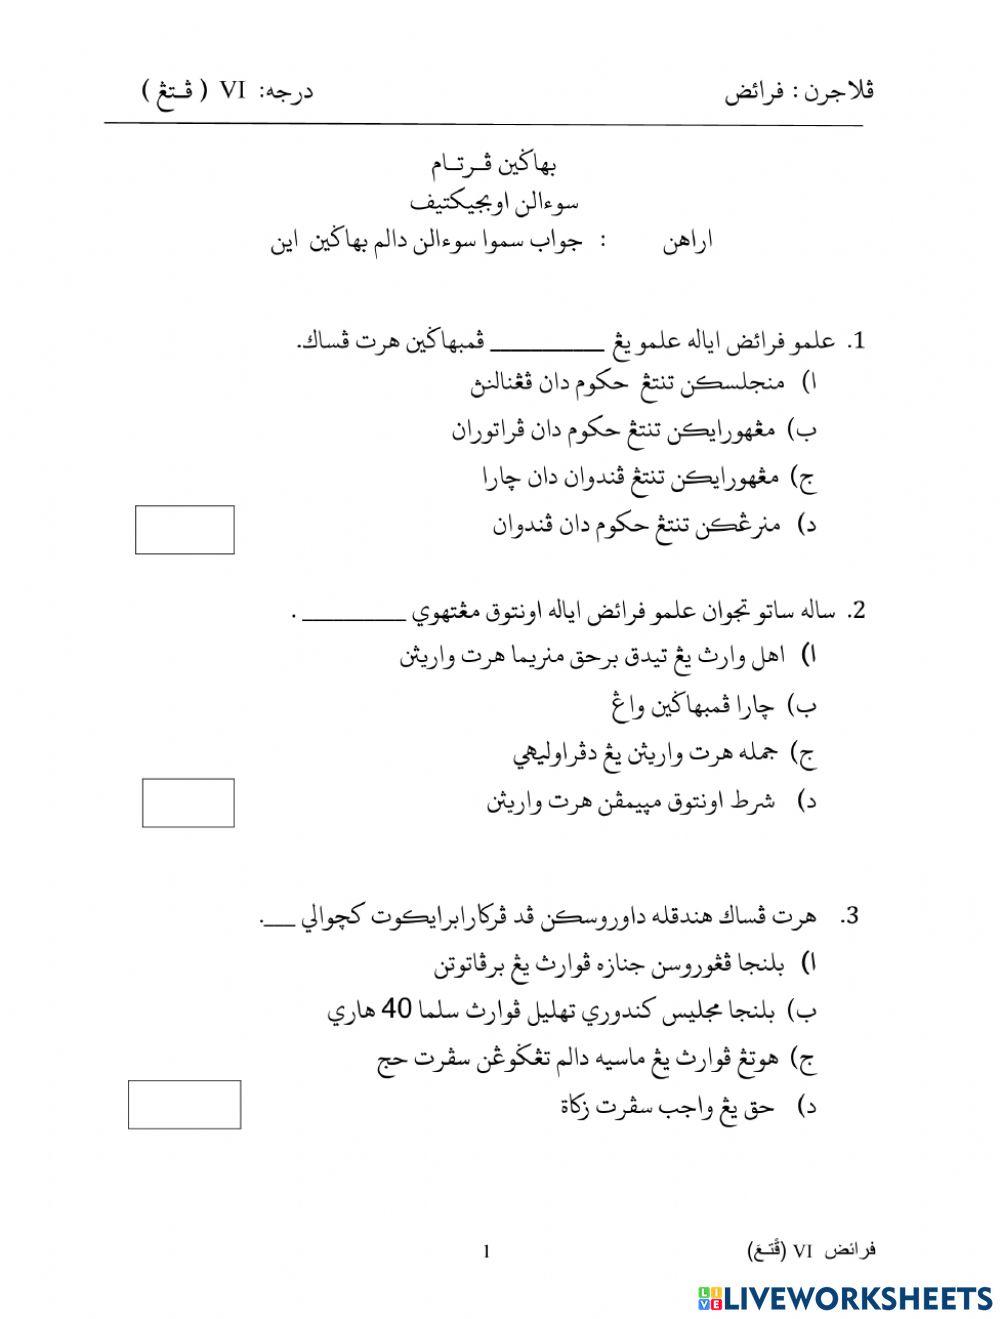 ڤلاجرن : فرائض درجه: VI ( ڤتڠ )
بهاݢين ڤرتام
سوءالن اوبجيكتيف
اراهن : جواب سموا سوءالن دالم بهاݢين اين
1. علمو فرائض اياله علمو يڠ ___________ ڤمبهاݢين هرت ڤساك.
ا) منجلسكن تنتڠ حكوم دان ڤڠنالنڽ
ب) مڠهورايكن تنتڠ حكوم دان ڤراتوران
ج) مڠهورايكن تنتڠ ڤندوان دان چارا
د) منرڠكن تنتڠ حكوم دان ڤندوان
2. ساله ساتو تجوان علمو فرائض اياله اونتوق مڠتهوي __________ .
ا) اهل وارث يڠ تيدق برحق منريما هرت واريثن
ب) چارا ڤمبهاݢين واڠ
ج) جمله هرت واريثن يڠ دڤراوليهي
د) شرط اونتوق مڽيمڤن هرت واريثن
3. هرت ڤساك هندقله داوروسكن قد ڤركارابرايكوت كچوالي ___.
ا) بلنجا ڤڠوروسن جنازه ڤوارث يڠ برڤاتوتن
ب) بلنجا مجليس كندوري تهليل ڤوارث سلما 40 هاري
ج) هوتڠ ڤوارث يڠ ماسيه دالم تڠݢوڠن سڤرت حج
د) حق يڠ واجب سڤرت زكاة
فرائض VI (ڤتڠ) 1
LIVEWORKSHEETS